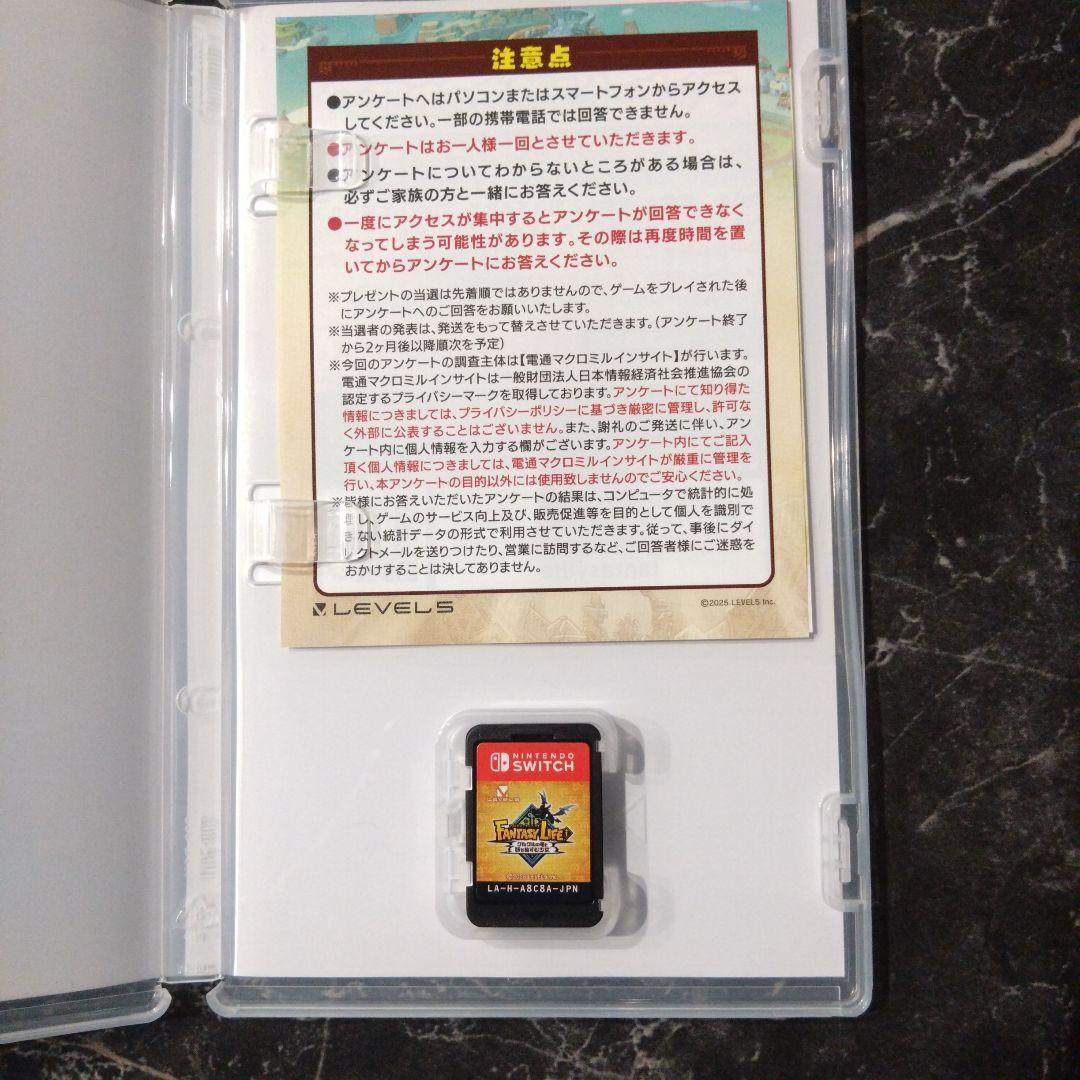 注意点
●アンケートへはパソコンまたはスマートフォンからアクセス
してください。一部の携帯電話では回答できません。
●アンケートはお一人様一回とさせていただきます。
●アンケートについてわからないところがある場合は、
必ずご家族の方と一緒にお答えください。
●一度にアクセスが集中するとアンケートが回答できなく
なってしまう可能性があります。その際は再度時間を置
いてからアンケートにお答えください。
※プレゼントの当選は先着順ではありませんので、ゲームをプレイされた後
にアンケートへのご回答をお願いいたします。
※当選者の発表は、発送をもって替えさせていただきます。（アンケート終了
から2ヶ月後以降順次を予定）
※今回のアンケートの調査主体は【電通マクロミルインサイト】が行います。
電通マクロミルインサイトは一般財団法人日本情報経済社会推進協会の
認定するプライバシーマークを取得しております。アンケートにて知り得た
情報につきましては、プライバシーポリシーに基づき厳密に管理し、許可な
く外部に公表することはございません。また、謝礼のご発送に伴い、アン
ケート内に個人情報を入力する欄がございます。アンケート内にてご記入
頂く個人情報につきましては、電通マクロミルインサイトが厳重に管理を
行い、本アンケートの目的以外には使用致しませんのでご安心ください。
※皆様にお答えいただいたアンケートの結果は、コンピュータで統計的に処
理し、ゲームのサービス向上及び、販売促進等を目的として個人を識別で
きない統計データの形式で利用させていただきます。従って、事後にダイ
レクトメールを送りつけたり、営業に訪問するなど、ご回答者様にご迷惑を
おかけすることは決してありません。
LEVEL5
©2025 LEVEL5 Inc.
NINTENDO
SWITCH
LEVEL5
FANTASY LIFE i
グルグルの竜と
時をぬすむ少女
LA-H-A8C8A-JPN